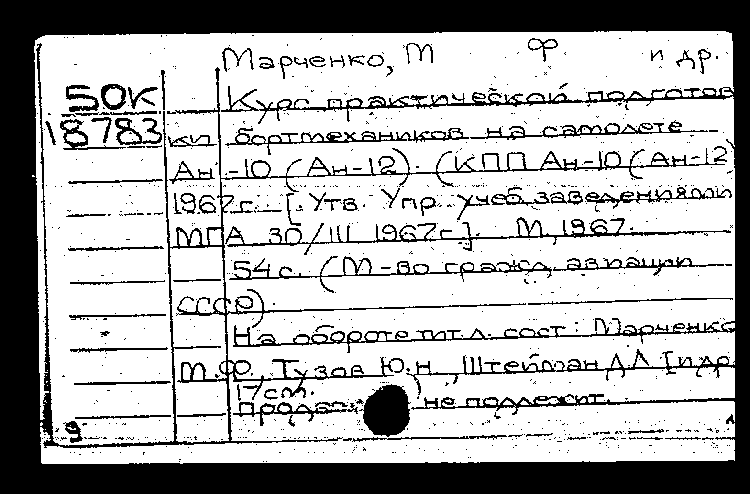 Марченко, М Ф. и др.
50К Курс практической подготов
18783 ки бортмехаников на самолете
Ан-10 (Ан-12). (КПП Ан-10 (Ан-12)
1967г. [. Утв. Упр. учеб. заведениями
МГА 30/III 1967г.]. М, 1967.
54 с. (М-во гражд. авиации
СССР).
На обороте тит. л. сост: Марченко
М.Ф., Тузов Ю.Н., Штейман Д Л [и др.
17 см. )
не подлежит.